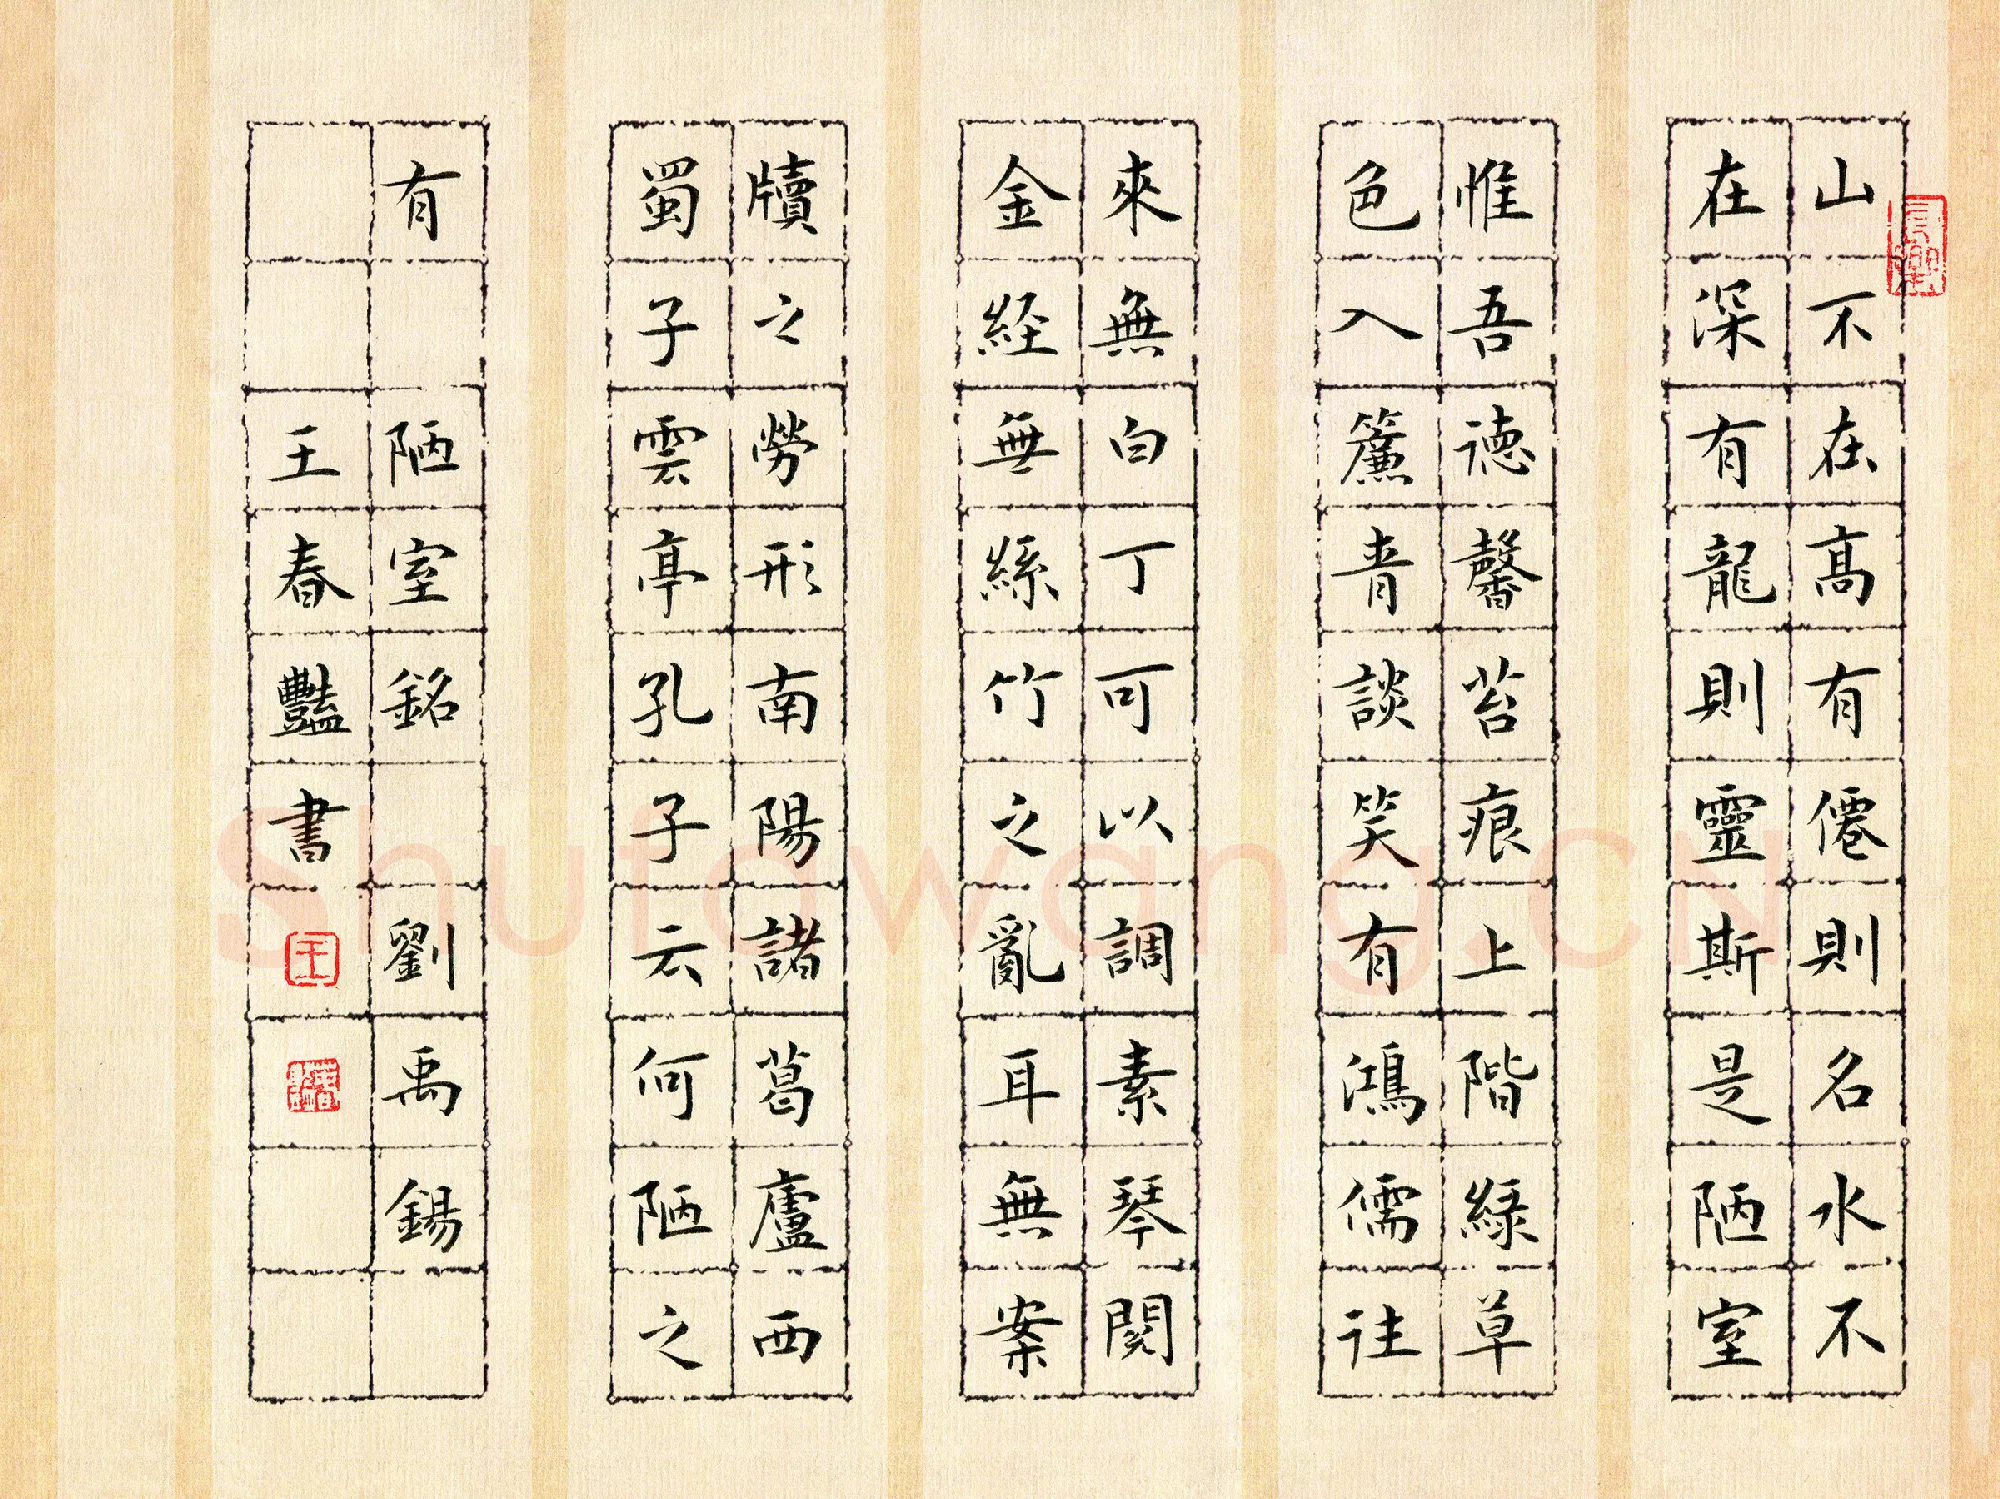 山不在高有僊則名水不
在深有龍則靈斯是陋室
惟吾德馨苔痕上階綠草
色入簾青談笑有鴻儒往
來無白丁可以調素琴閱
金經無絲竹之亂耳無案
牘之勞形南陽諸葛廬西
蜀子雲亭孔子云何陋之
有 陋室銘 劉禹錫
王春豔書
王
Shufawang.CN